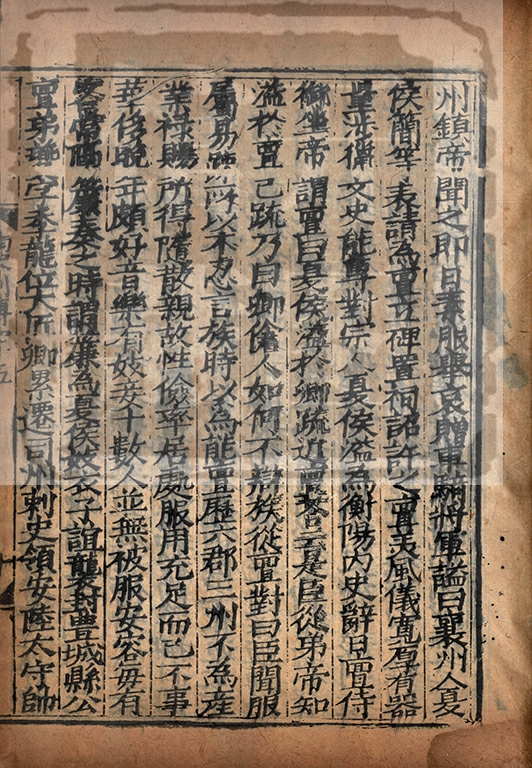 州鎮帝聞之即日素服舉哀贈車騎將軍謚曰襄州人夏
侯簡等表請為亶立碑置祠詔許之亶美風儀寬厚有器
量涉獵文史能專對宗人夏侯溢為衡陽內史辭日亶侍
御坐帝謂亶曰夏侯溢於卿疏近亶答云是臣從弟帝知
溢於亶己疏乃曰卿傖人如何不辯族從亶對曰臣聞服
屬易疏所以不忍言族時以為能亶歷六郡三州不為產
業祿賜所得隨散親故性儉率居處服用充足而已不事
華侈晚年頗好音樂有妓妾十數人並無被服安容毋有
客常隔簾奏之時謂簾為夏侯妓衣子誼襲封豐城縣公
亶弟夔字季龍位大匠卿累遷司州刺史領安陸太守帥